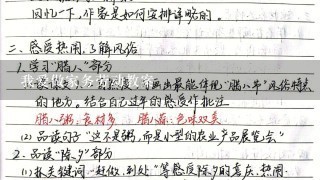 回忆一下，作家是如何安排详略的。
二、感受热闹，了解风俗
1. 学习“腊八”部分
我爱做家务活动教案
画出最能体现“腊八节”风俗特点
的地方。结合自己过年的感受作批注
腊八粥：食材多 腊八蒜：色味双美
(2) 品读句子“这不是粥，而是小型的农业产品展览会”
2. 品读“除夕”部分
(1) 抓关键词“赶做，到处”等感受除夕的喜庆、热闹